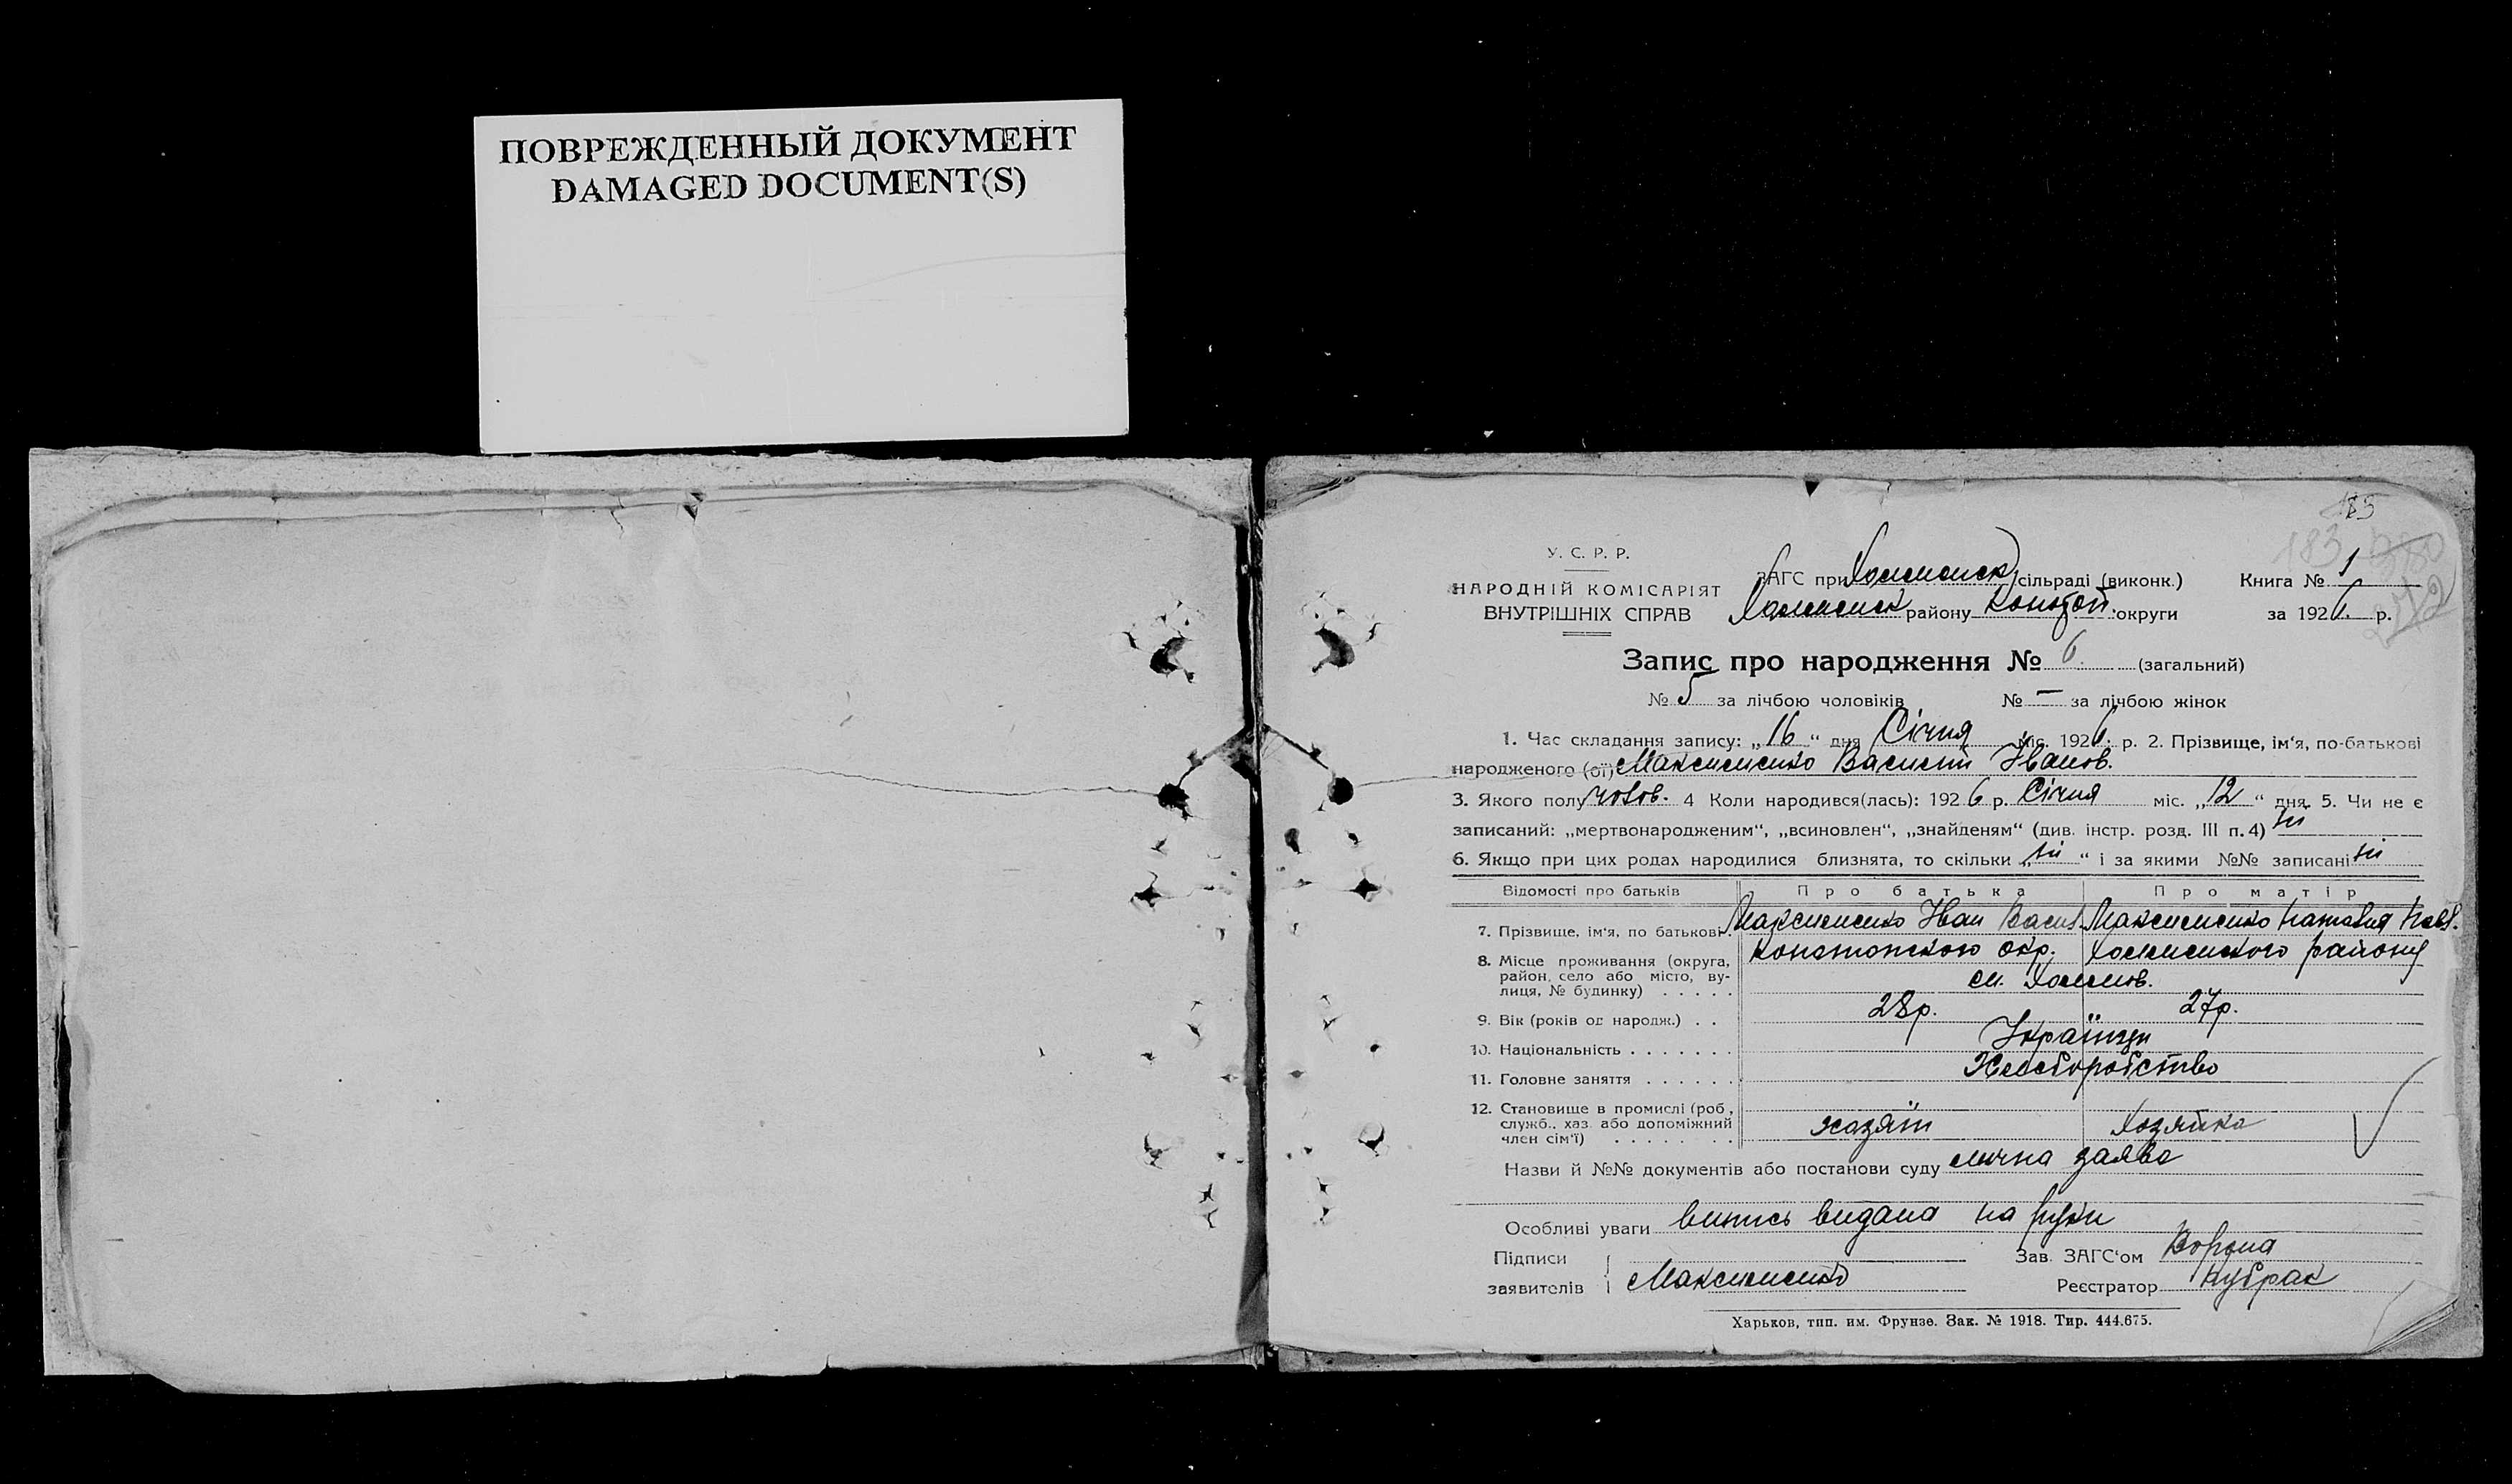 ПОВРЕЖДЕННЫЙ ДОКУМЕНТ
DAMAGED DOCUMENT(S)
185
183
У. С. Р. Р.
НАРОДНІЙ КОМІСАРІЯТ
ВНУТРІШНІХ СПРАВ
ЗАГС при сільраді (виконк.)
району Коно́топ. округи
Книга № 1
за 1926 р.
Запис про народження № 6 (загальний)
№ 5 за лічбою чоловіків № — за лічбою жінок
1. Час складання запису: „16“ дня Січня міс. 1926 р. 2. Прізвище, ім‘я, по-батькові
народженого (ої) Максименко Василий Іванов.
3. Якого полу чолов. 4 Коли народився(лась): 1926 р. Січня міс. „12“ дня. 5. Чи не є
записаний: „мертвонародженим“, „всиновлен“, „знайденям“ (див. інстр. розд. III п. 4) ні
6. Якщо при цих родах народилися близнята, то скільки „ні“ і за якими №№ записані ні
Відомості про батьків Про батька Про матір
7. Прізвище, ім‘я, по батькові. Максименко Іван Васил. Максименко Наталия Павл.
8. Місце проживання (округа, район, село або місто, вулиця, № будинку) . . . . . Конотопского окр. района
см.
9. Вік (років од народж.) . . 28р. 27р.
10. Національність . . . . . . . Українци
11. Головне заняття . . . . . . Хлеборобство
12. Становище в промислі (роб., служб., хаз. або допоміжний член сім‘ї) . . . . . . . . хазяїн Хозяйка
Назви й №№ документів або постанови суду лична заява
Особливі уваги випись видана на руки
Підписи
заявителів Максименко
Зав. ЗАГС‘ом
Реєстратор Кубрак
Харьков, тип. им. Фрунзе. Зак. № 1918. Тир. 444.675.